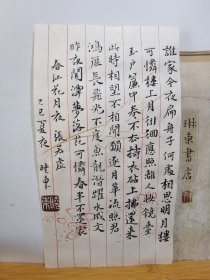 誰家今夜扁舟子何處相思明月樓
可憐樓上月徘徊應照離人妝鏡臺
玉戶簾中卷不去搗衣砧上拂還來
此時相望不相聞願逐月華流照君
鴻雁長飛光不度魚龍潛躍水成文
昨夜閒潭夢落花可憐春半不還家
春江花月夜 張若虛
乙巳夏夜
琳東書店